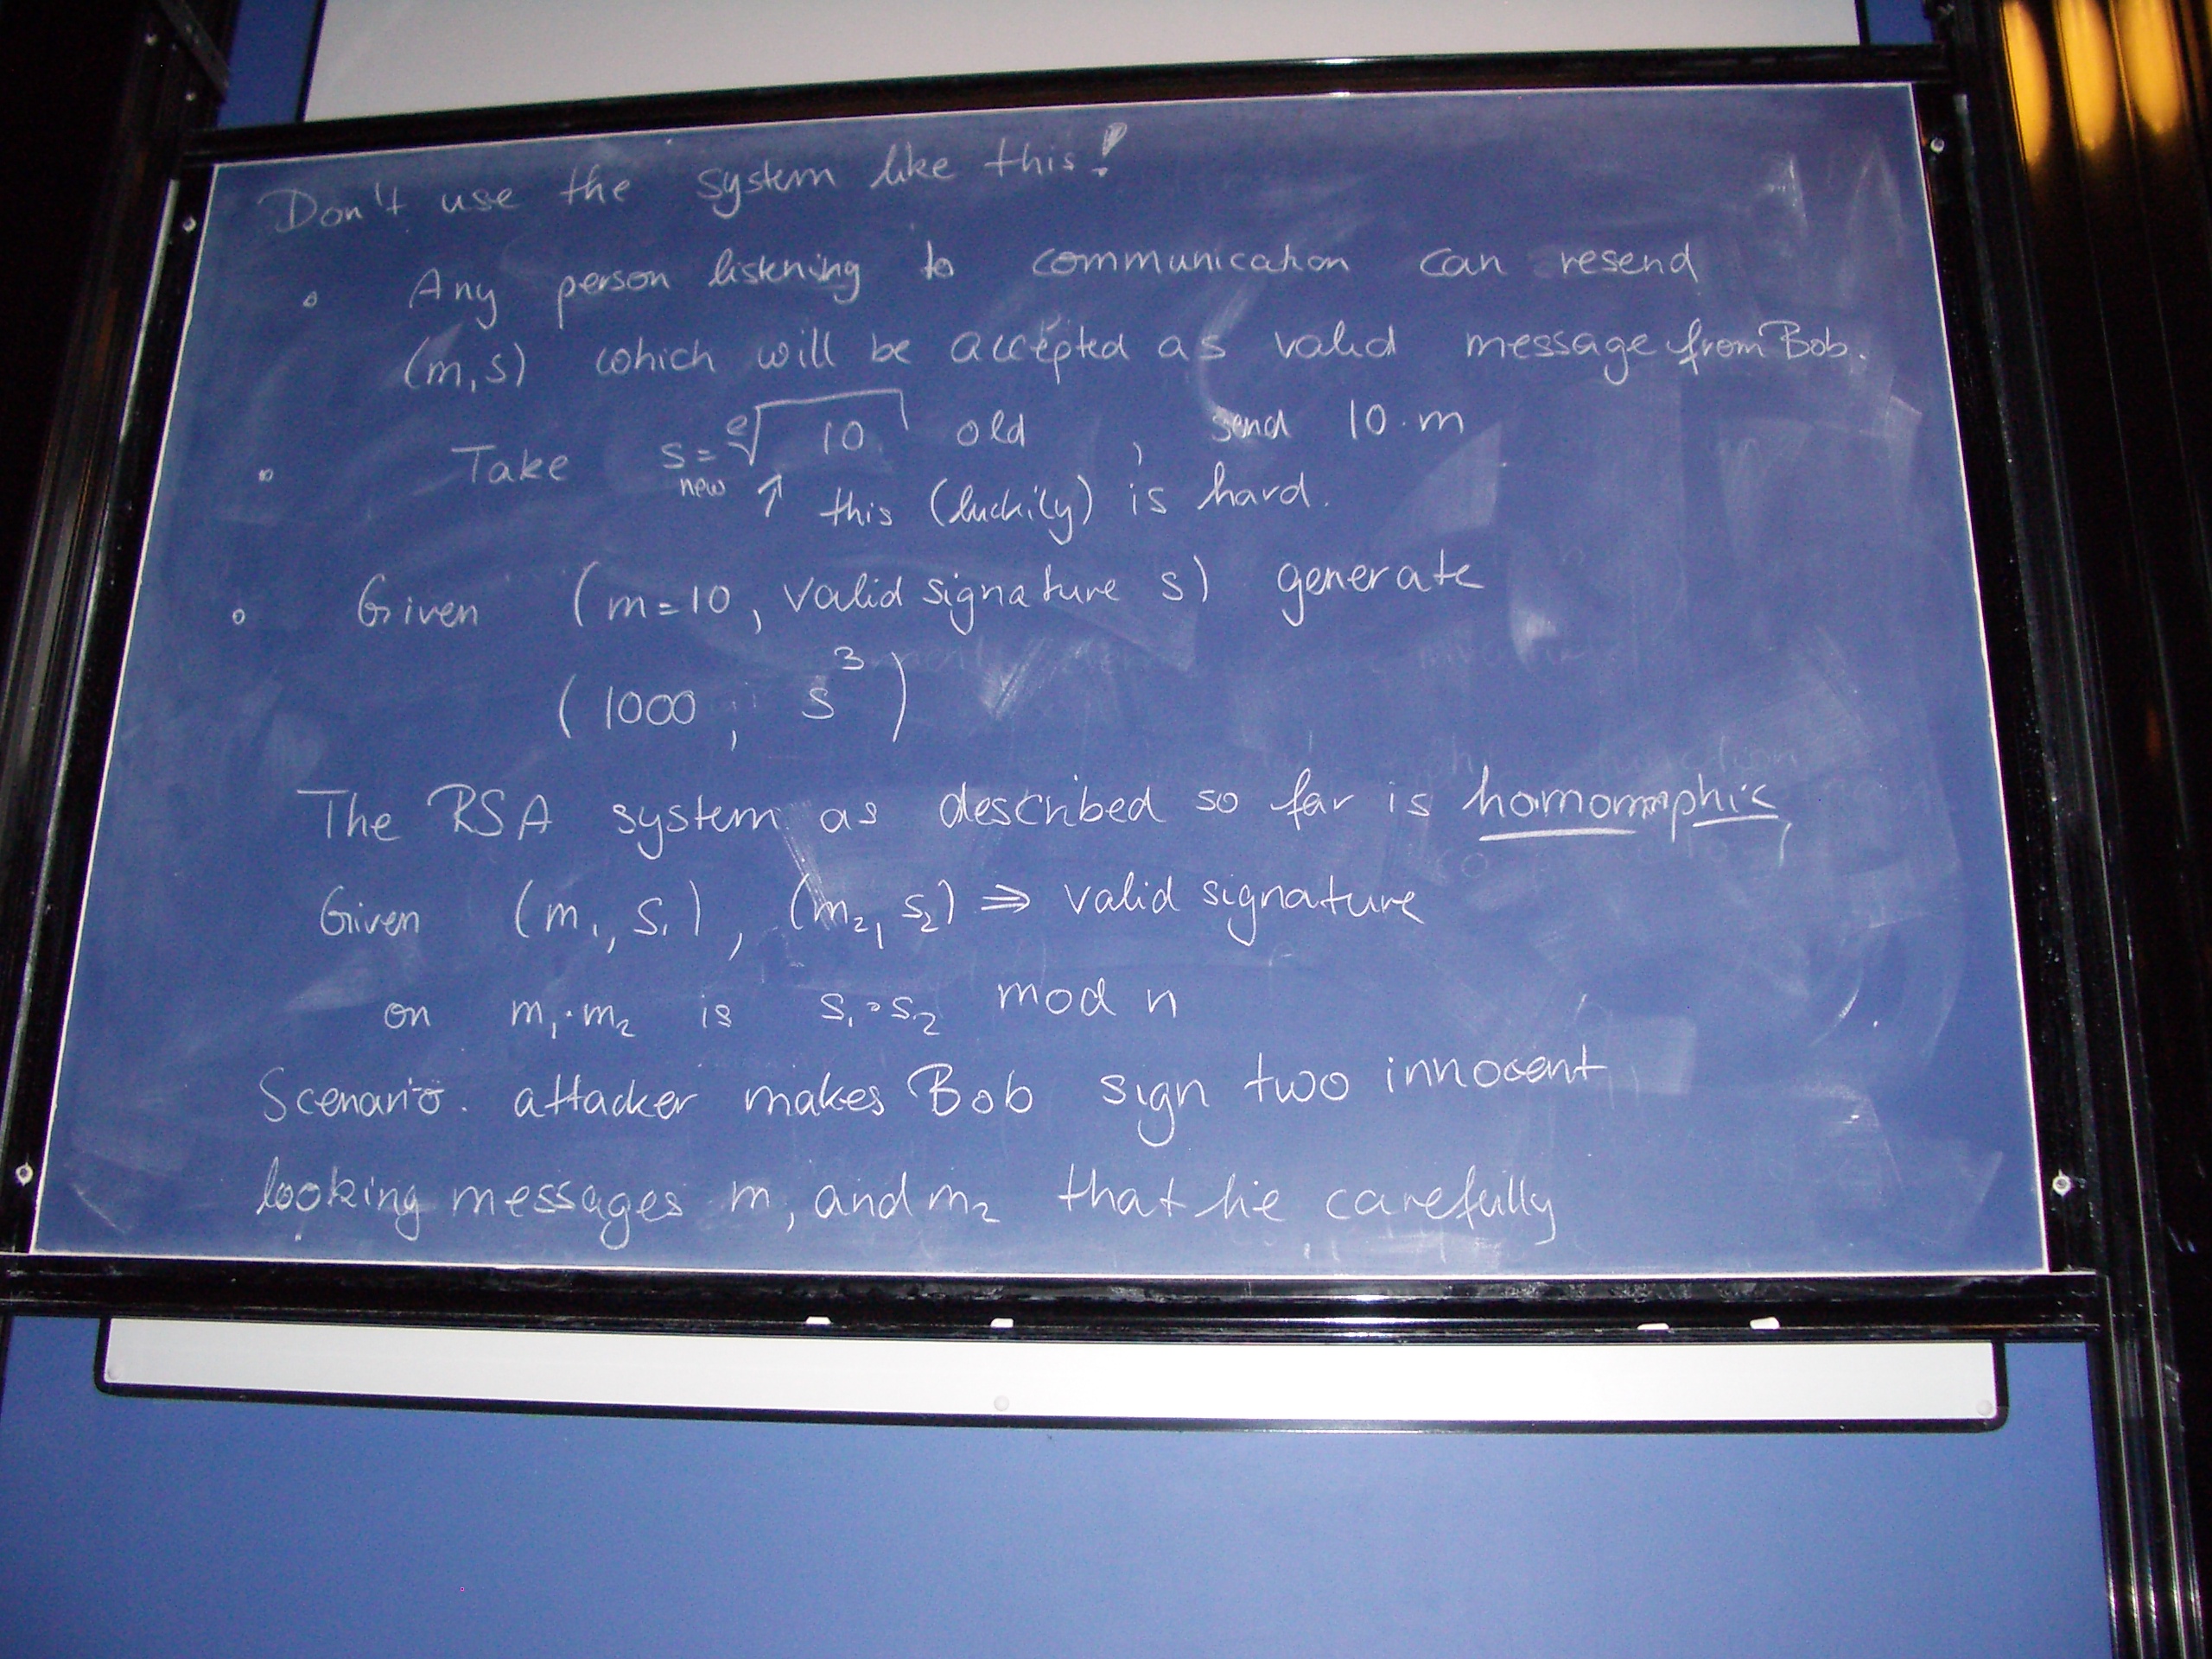 Don't use the system like this!
∘ Any person listening to communication can resend
(m,s) which will be accepted as valid message from Bob.
∘ Take s = ᵉ√10 old , send 10·m
new ↑ this (luckily) is hard.
∘ Given (m=10, valid signature s) generate
(1000, s³)
The RSA system as described so far is homomorphic,
Given (m₁, s₁), (m₂, s₂) ⇒ valid signature
on m₁·m₂ is s₁·s₂ mod n
Scenario. attacker makes Bob sign two innocent
looking messages m₁ and m₂ that he carefully